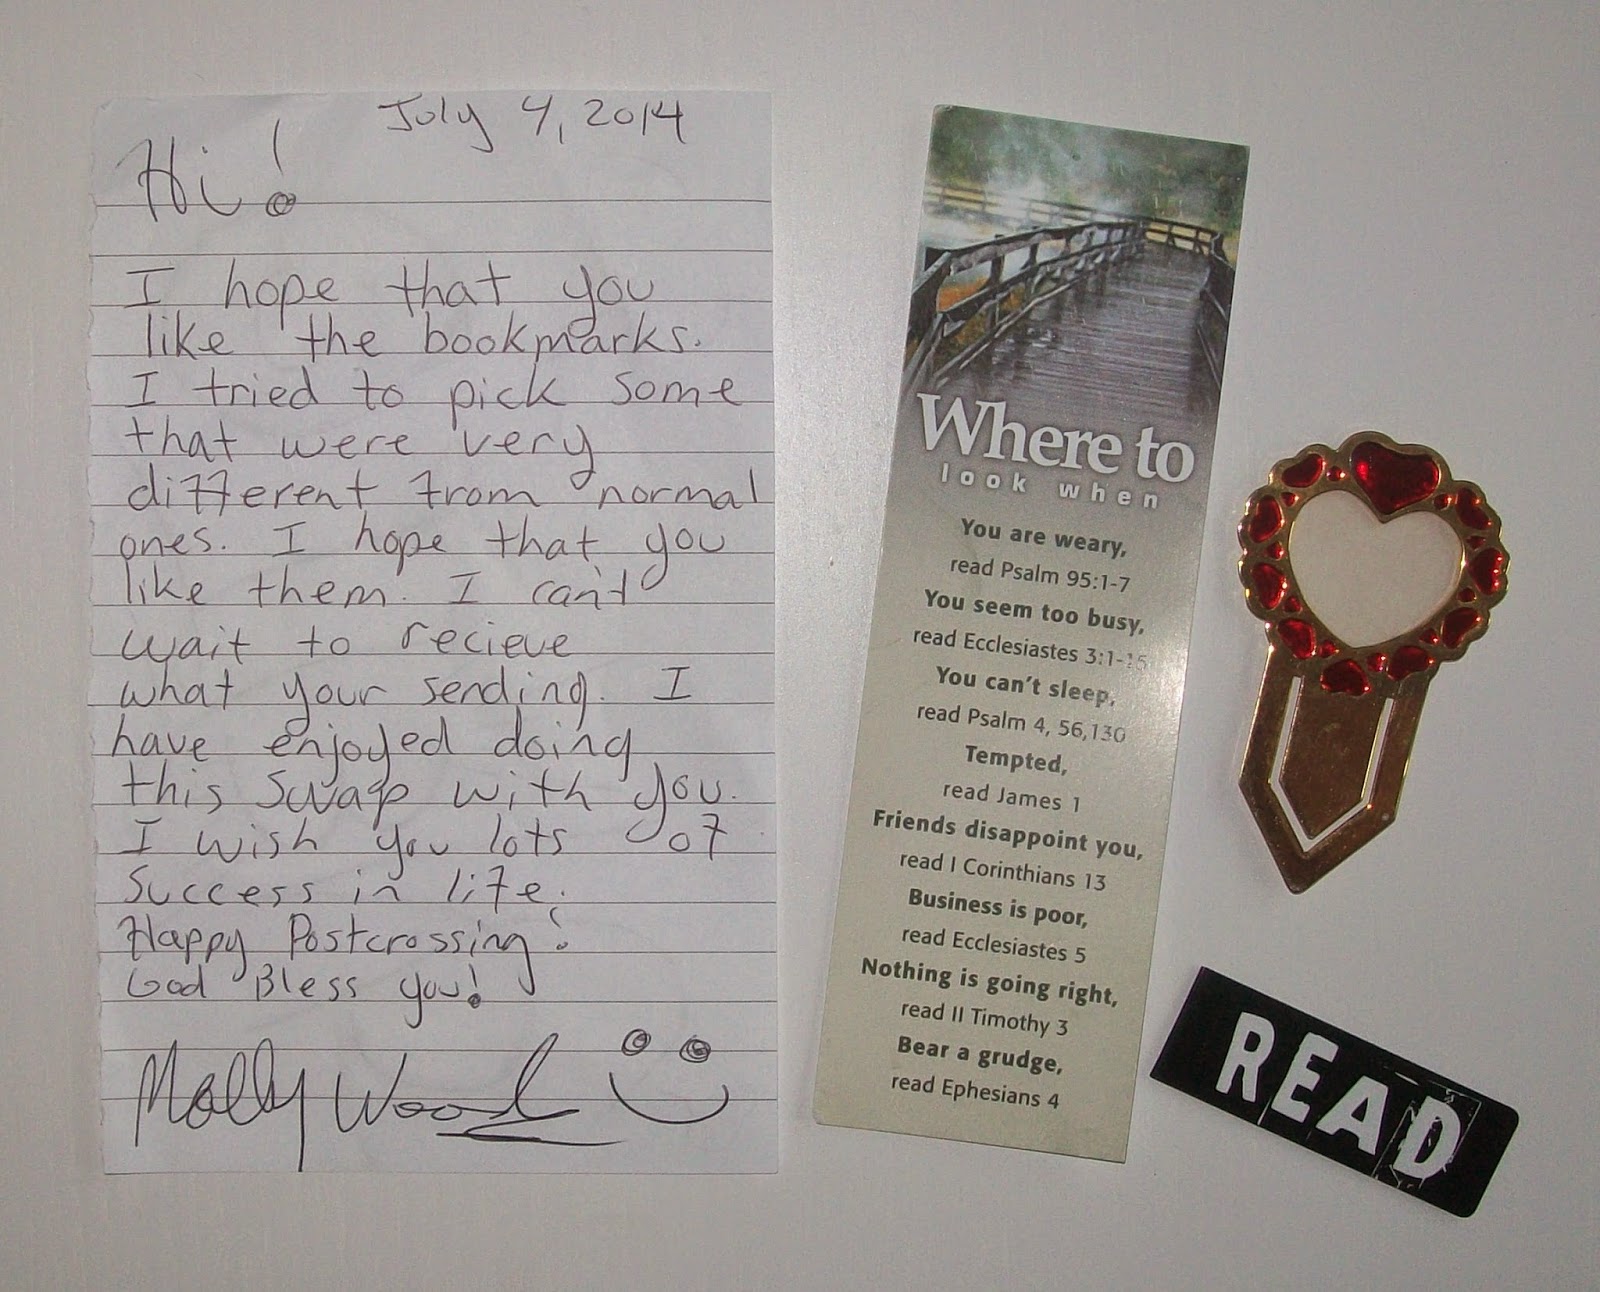 July 4, 2014
Hi!
I hope that you
like the bookmarks.
I tried to pick some
that were very
different from normal
ones. I hope that you
like them. I can't
wait to recieve
what your sending. I
have enjoyed doing
this swap with you.
I wish you lots of
success in life.
Happy Postcrossing!
God Bless you!
Molly Wood
Where to
look when
You are weary,
read Psalm 95:1-7
You seem too busy,
read Ecclesiastes 3:1-15
You can't sleep,
read Psalm 4, 56,130
Tempted,
read James 1
Friends disappoint you,
read I Corinthians 13
Business is poor,
read Ecclesiastes 5
Nothing is going right,
read II Timothy 3
Bear a grudge,
read Ephesians 4
READ